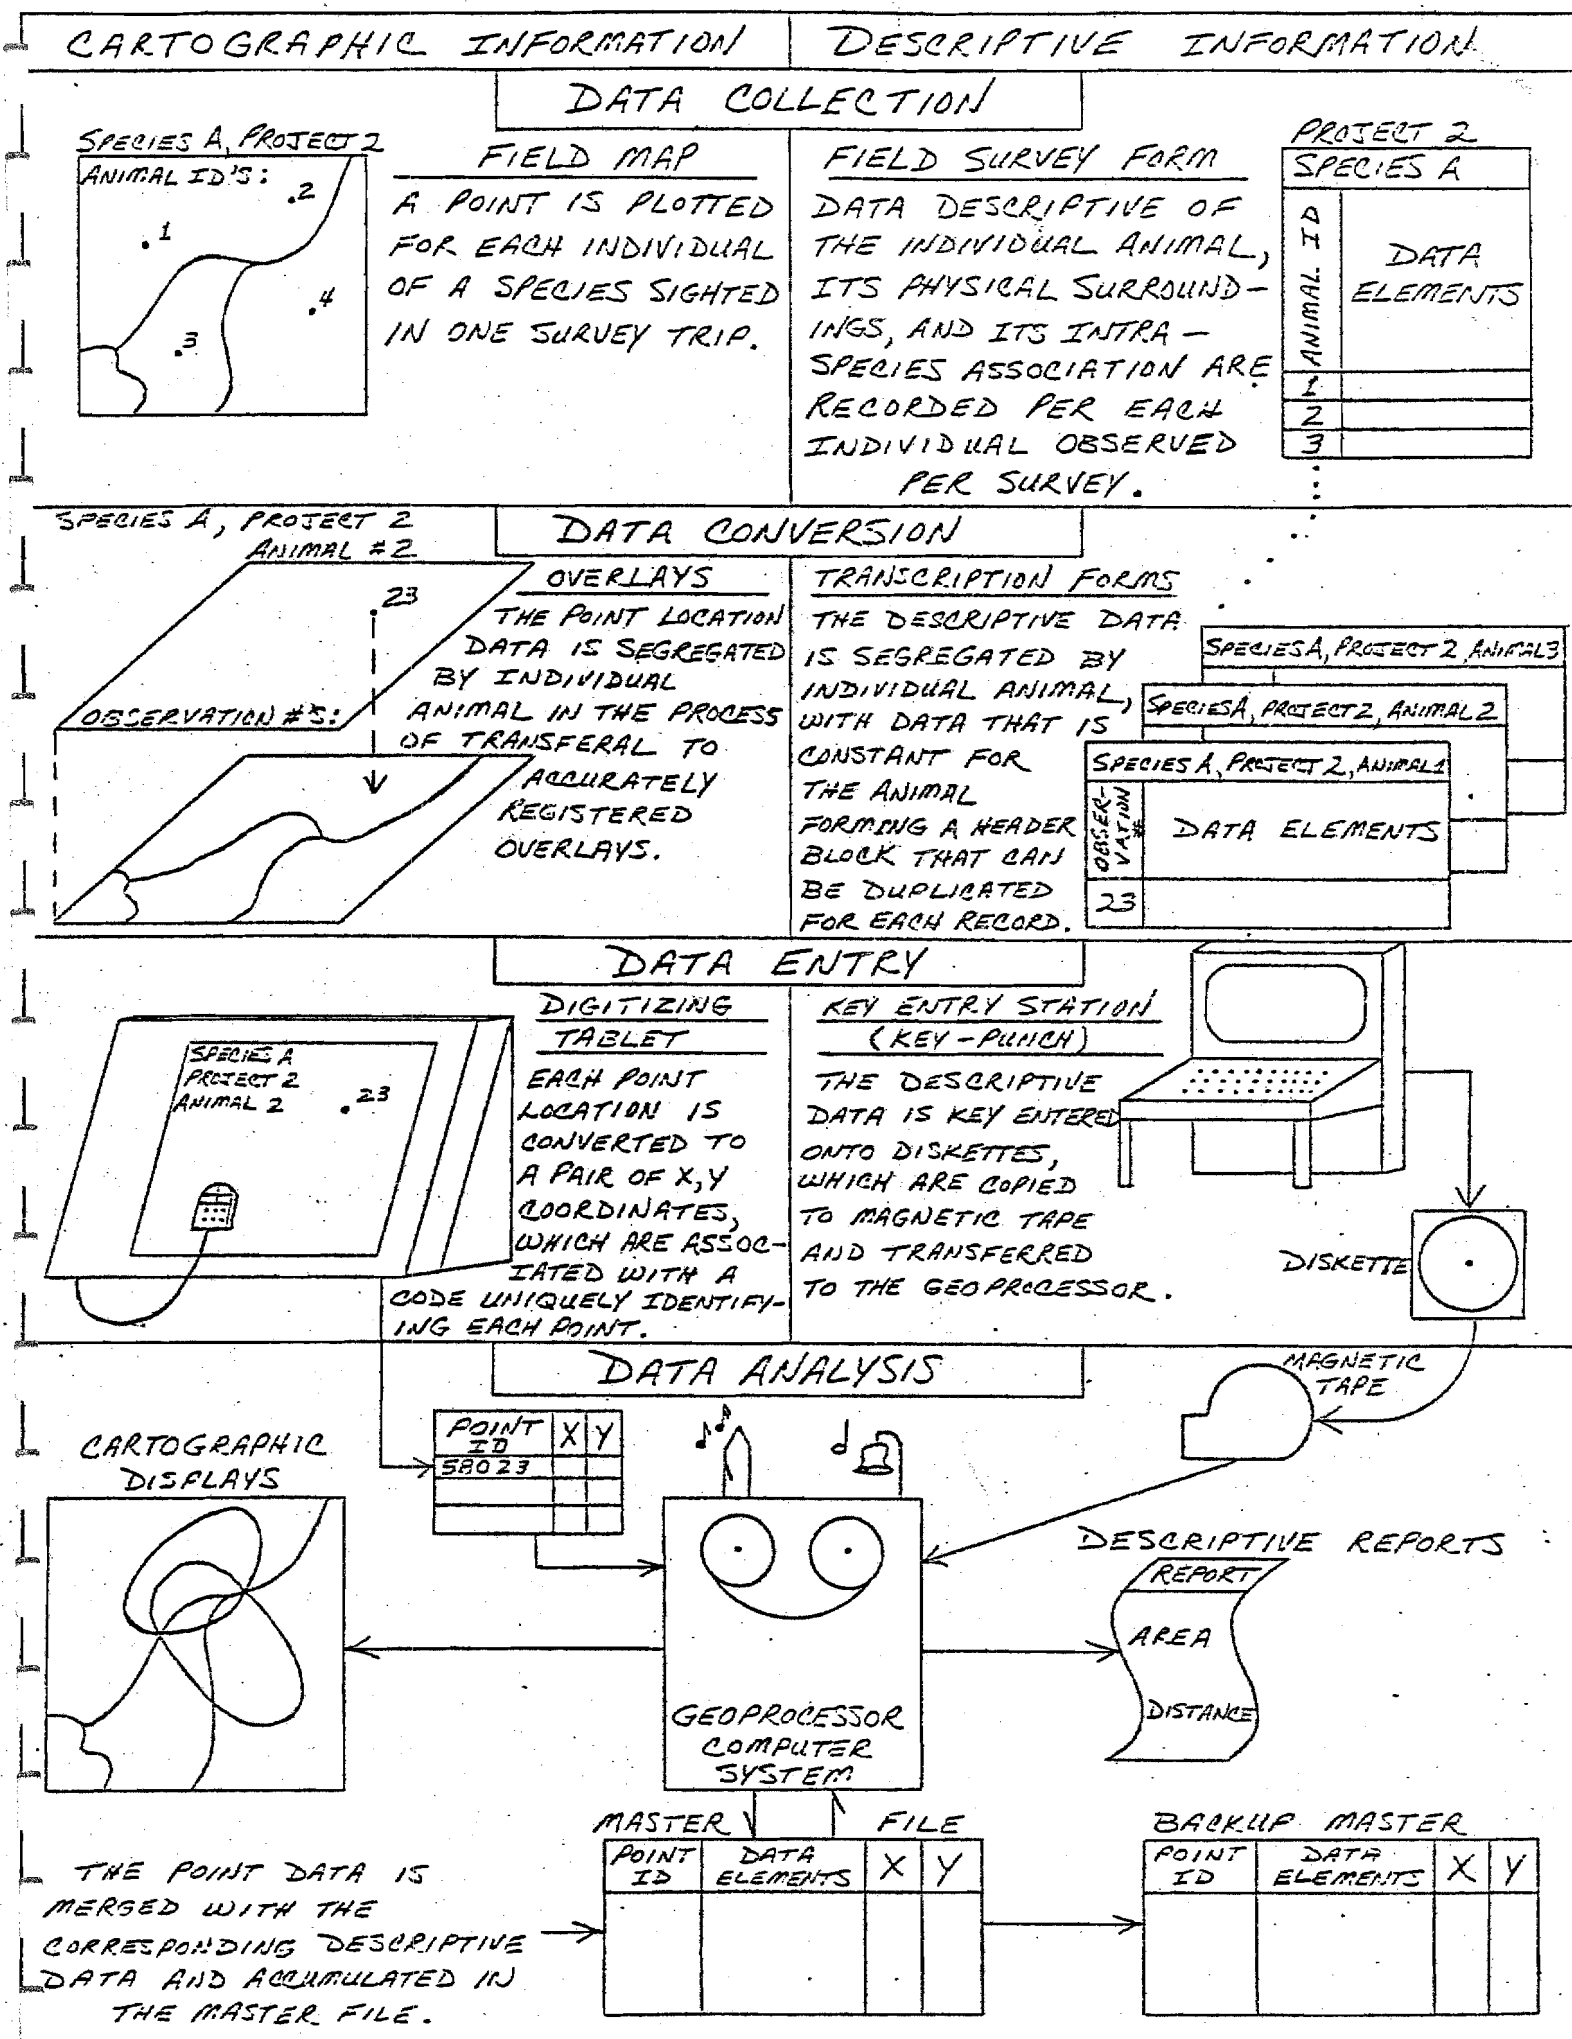 CARTOGRAPHIC INFORMATION
DESCRIPTIVE INFORMATION
DATA COLLECTION
SPECIES A, PROJECT 2
ANIMAL ID'S:
2
1
4
3
FIELD MAP
A POINT IS PLOTTED
FOR EACH INDIVIDUAL
OF A SPECIES SIGHTED
IN ONE SURVEY TRIP.
FIELD SURVEY FORM
DATA DESCRIPTIVE OF
THE INDIVIDUAL ANIMAL,
ITS PHYSICAL SURROUND-
INGS, AND ITS INTRA-
SPECIES ASSOCIATION ARE
RECORDED PER EACH
INDIVIDUAL OBSERVED
PER SURVEY.
PROJECT 2
SPECIES A
ANIMAL ID
DATA
ELEMENTS
1
2
3
DATA CONVERSION
SPECIES A, PROJECT 2
ANIMAL #2
23
OBSERVATION #'S:
OVERLAYS
THE POINT LOCATION
DATA IS SEGREGATED
BY INDIVIDUAL
ANIMAL IN THE PROCESS
OF TRANSFERAL TO
ACCURATELY
REGISTERED
OVERLAYS.
TRANSCRIPTION FORMS
THE DESCRIPTIVE DATA
IS SEGREGATED BY
INDIVIDUAL ANIMAL,
WITH DATA THAT IS
CONSTANT FOR
THE ANIMAL
FORMING A HEADER
BLOCK THAT CAN
BE DUPLICATED
FOR EACH RECORD.
SPECIES A, PROJECT 2, ANIMAL 3
SPECIES A, PROJECT 2, ANIMAL 2
SPECIES A, PROJECT 2, ANIMAL 1
OBSER-
VATION
#
DATA ELEMENTS
23
DATA ENTRY
SPECIES A
PROJECT 2
ANIMAL 2
23
DIGITIZING
TABLET
EACH POINT
LOCATION IS
CONVERTED TO
A PAIR OF X,Y
COORDINATES,
WHICH ARE ASSOC-
IATED WITH A
CODE UNIQUELY IDENTIFY-
ING EACH POINT.
KEY ENTRY STATION
(KEY-PUNCH)
THE DESCRIPTIVE
DATA IS KEY ENTERED
ONTO DISKETTES,
WHICH ARE COPIED
TO MAGNETIC TAPE
AND TRANSFERRED
TO THE GEOPROCESSOR.
DISKETTE
DATA ANALYSIS
MAGNETIC
TAPE
CARTOGRAPHIC
DISPLAYS
POINT
ID
X
Y
58023
GEOPROCESSOR
COMPUTER
SYSTEM
DESCRIPTIVE REPORTS
REPORT
AREA
DISTANCE
THE POINT DATA IS
MERGED WITH THE
CORRESPONDING DESCRIPTIVE
DATA AND ACCUMULATED IN
THE MASTER FILE.
MASTER FILE
POINT
ID
DATA
ELEMENTS
X
Y
BACKUP MASTER
POINT
ID
DATA
ELEMENTS
X
Y